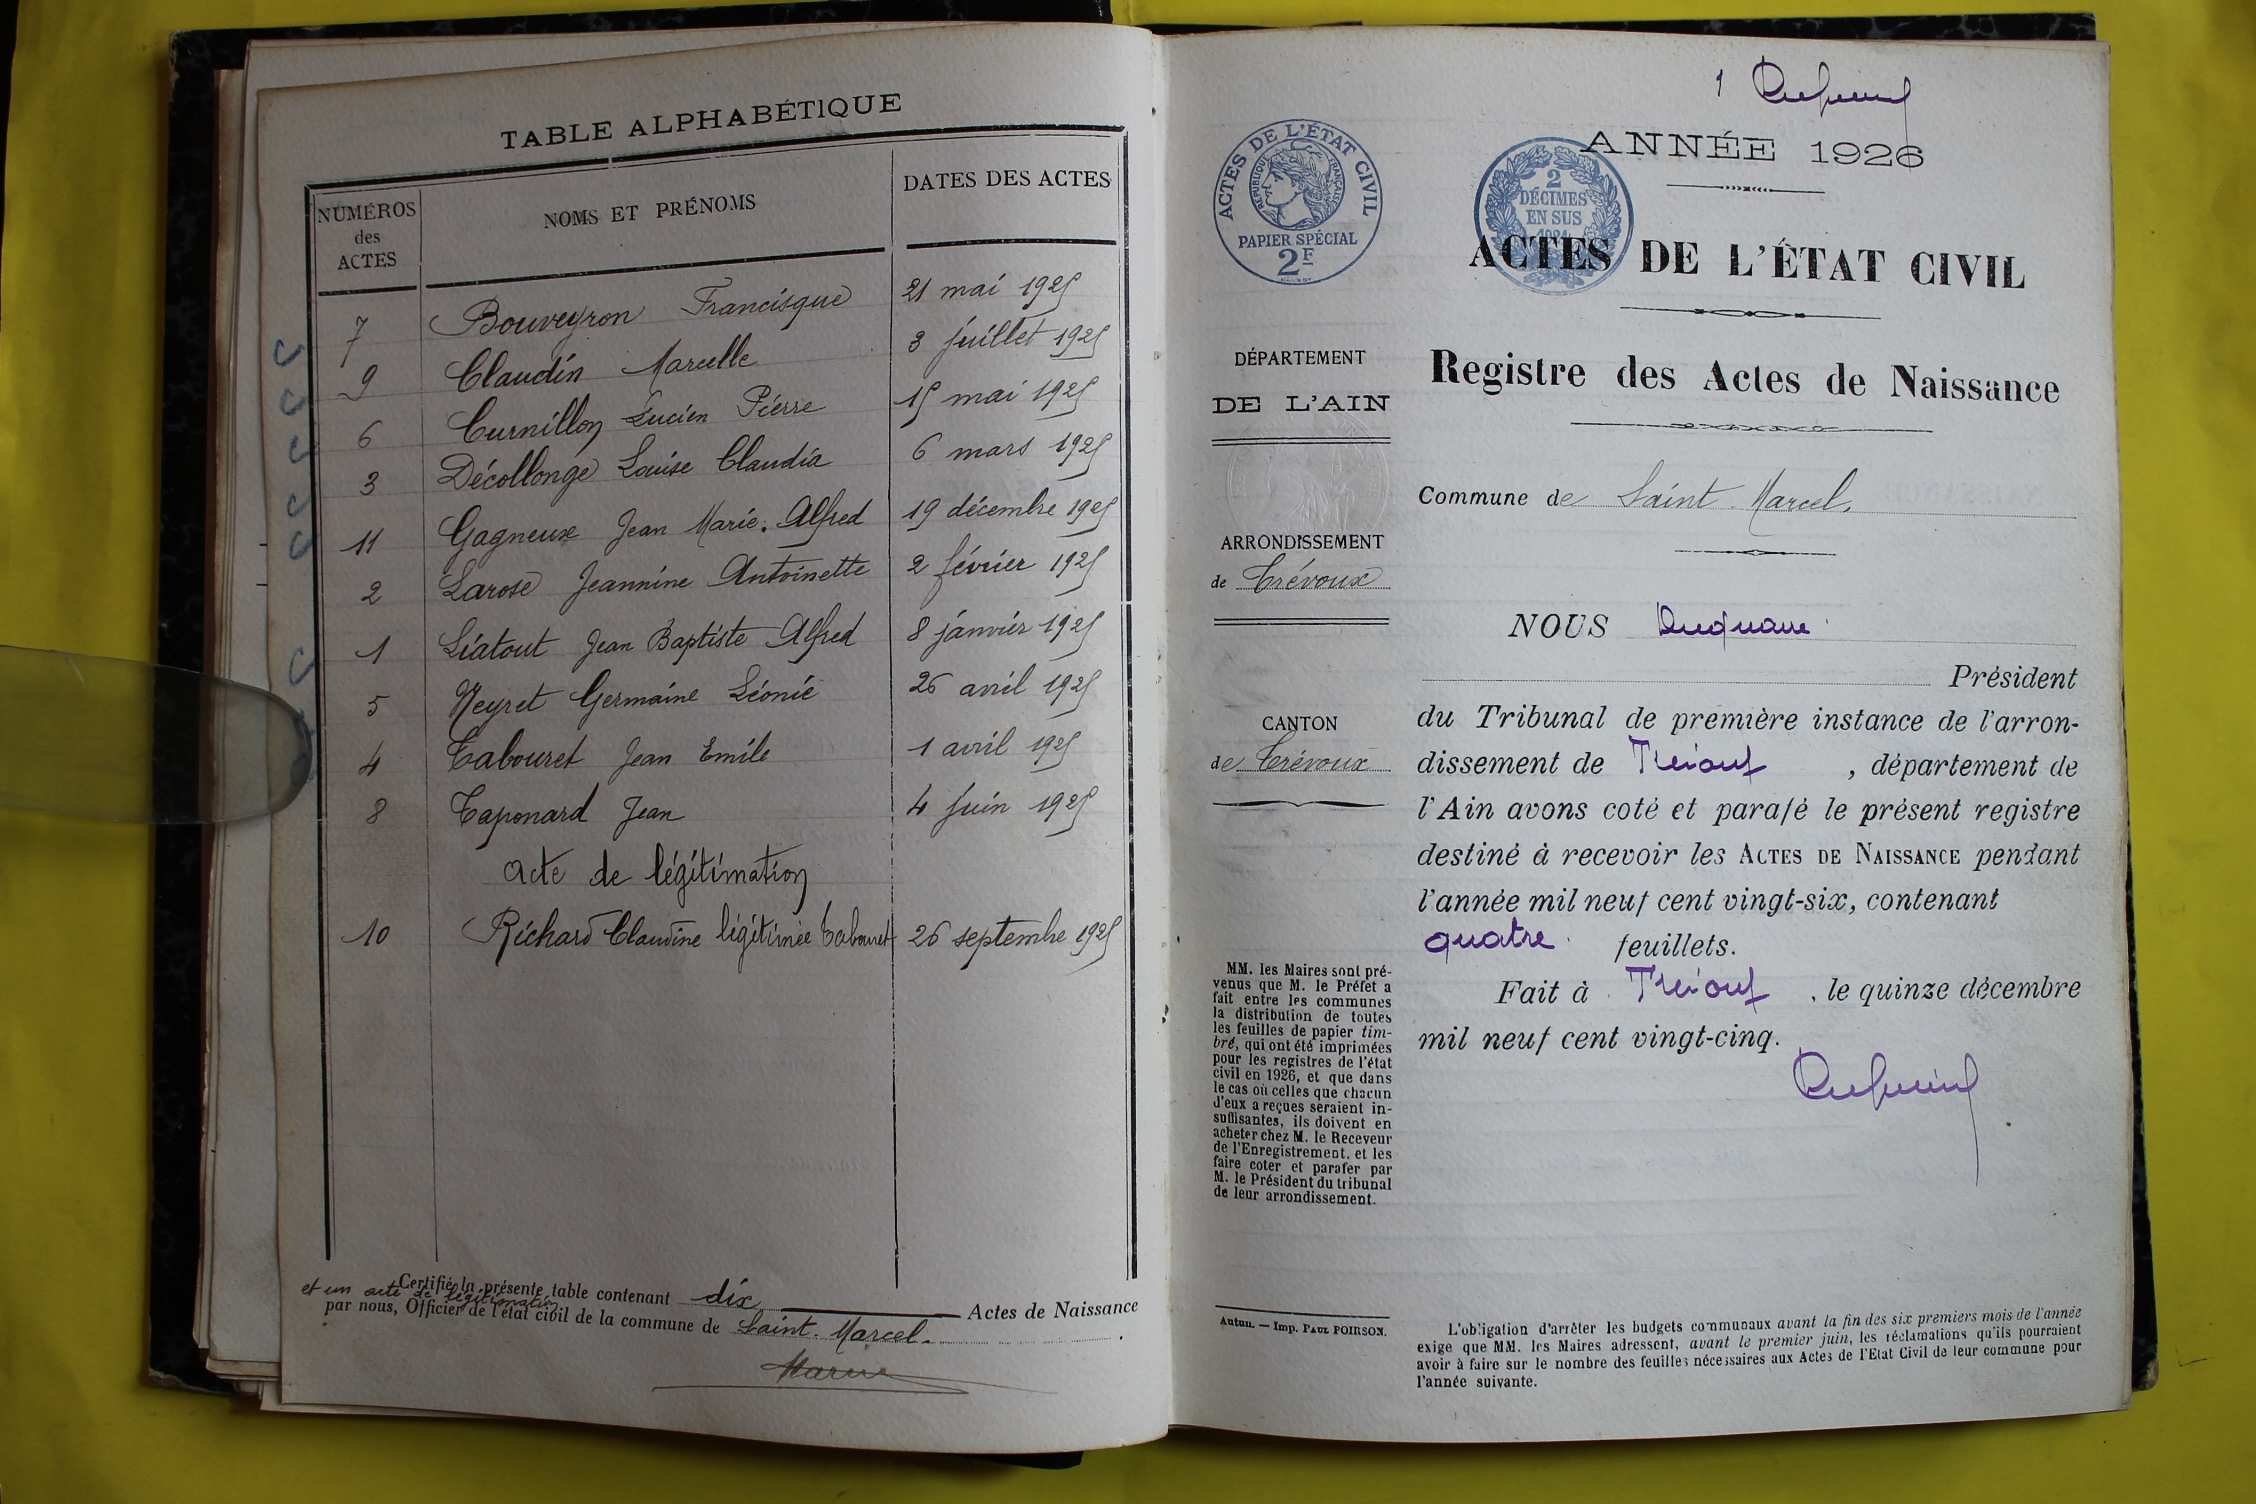 TABLE ALPHABÉTIQUE
NUMÉROS
des
ACTES
NOMS ET PRÉNOMS
DATES DES ACTES
7 Bouveyron Francisque 21 mai 1925
9 Claudin Marcelle 3 juillet 1925
6 Curnillon Lucien Pierre 15 mai 1925
3 Décollonge Louise Claudia 6 mars 1925
11 Gagneux Jean Marie Alfred 19 décembre 1925
2 Larose Jeannine Antoinette 2 février 1925
1 Liatout Jean Baptiste Alfred 8 janvier 1925
5 Neyret Germaine Léonie 26 avril 1925
4 Tabouret Jean Emile 1 avril 1925
8 Taponard Jean 4 Juin 1925
acte de légitimation
10 Richard Claudine légitimée Tabouret 26 septembre 1925
Certifié la présente table contenant dix Actes de Naissance
et un acte de légitimation
par nous, Officier de l'état civil de la commune de Saint-Marcel.
1
ANNÉE 1926
ACTES DE L'ÉTAT CIVIL
RÉPUBLIQUE FRANÇAISE
PAPIER SPÉCIAL
2F
2
DÉCIMES
EN SUS
ACTES DE L'ÉTAT CIVIL
Registre des Actes de Naissance
DÉPARTEMENT
DE L'AIN
Commune de Saint-Marcel.
ARRONDISSEMENT
de Trévoux
CANTON
de Trévoux
NOUS
Président
du Tribunal de première instance de l'arron-
dissement de Trévoux, département de
l'Ain avons coté et parafé le présent registre
destiné à recevoir les ACTES DE NAISSANCE pendant
l'année mil neuf cent vingt-six, contenant
quatre feuillets.
Fait à Trévoux, le quinze décembre
mil neuf cent vingt-cinq.
MM. les Maires sont pré-
venus que M. le Préfet a
fait entre les communes
la distribution de toutes
les feuilles de papier tim-
bré, qui ont été imprimées
pour les registres de l'état
civil en 1926, et que dans
le cas où celles que chacun
d'eux a reçues seraient in-
suffisantes, ils doivent en
acheter chez M. le Receveur
de l'Enregistrement, et les
faire coter et parafer par
M. le Président du tribunal
de leur arrondissement.
Autun. — Imp. PAUL POIRSON.
L'obligation d'arrêter les budgets communaux avant la fin des six premiers mois de l'année
exige que MM. les Maires adressent, avant le premier juin, les réclamations qu'ils pourraient
avoir à faire sur le nombre des feuilles nécessaires aux Actes de l'Etat Civil de leur commune pour
l'année suivante.